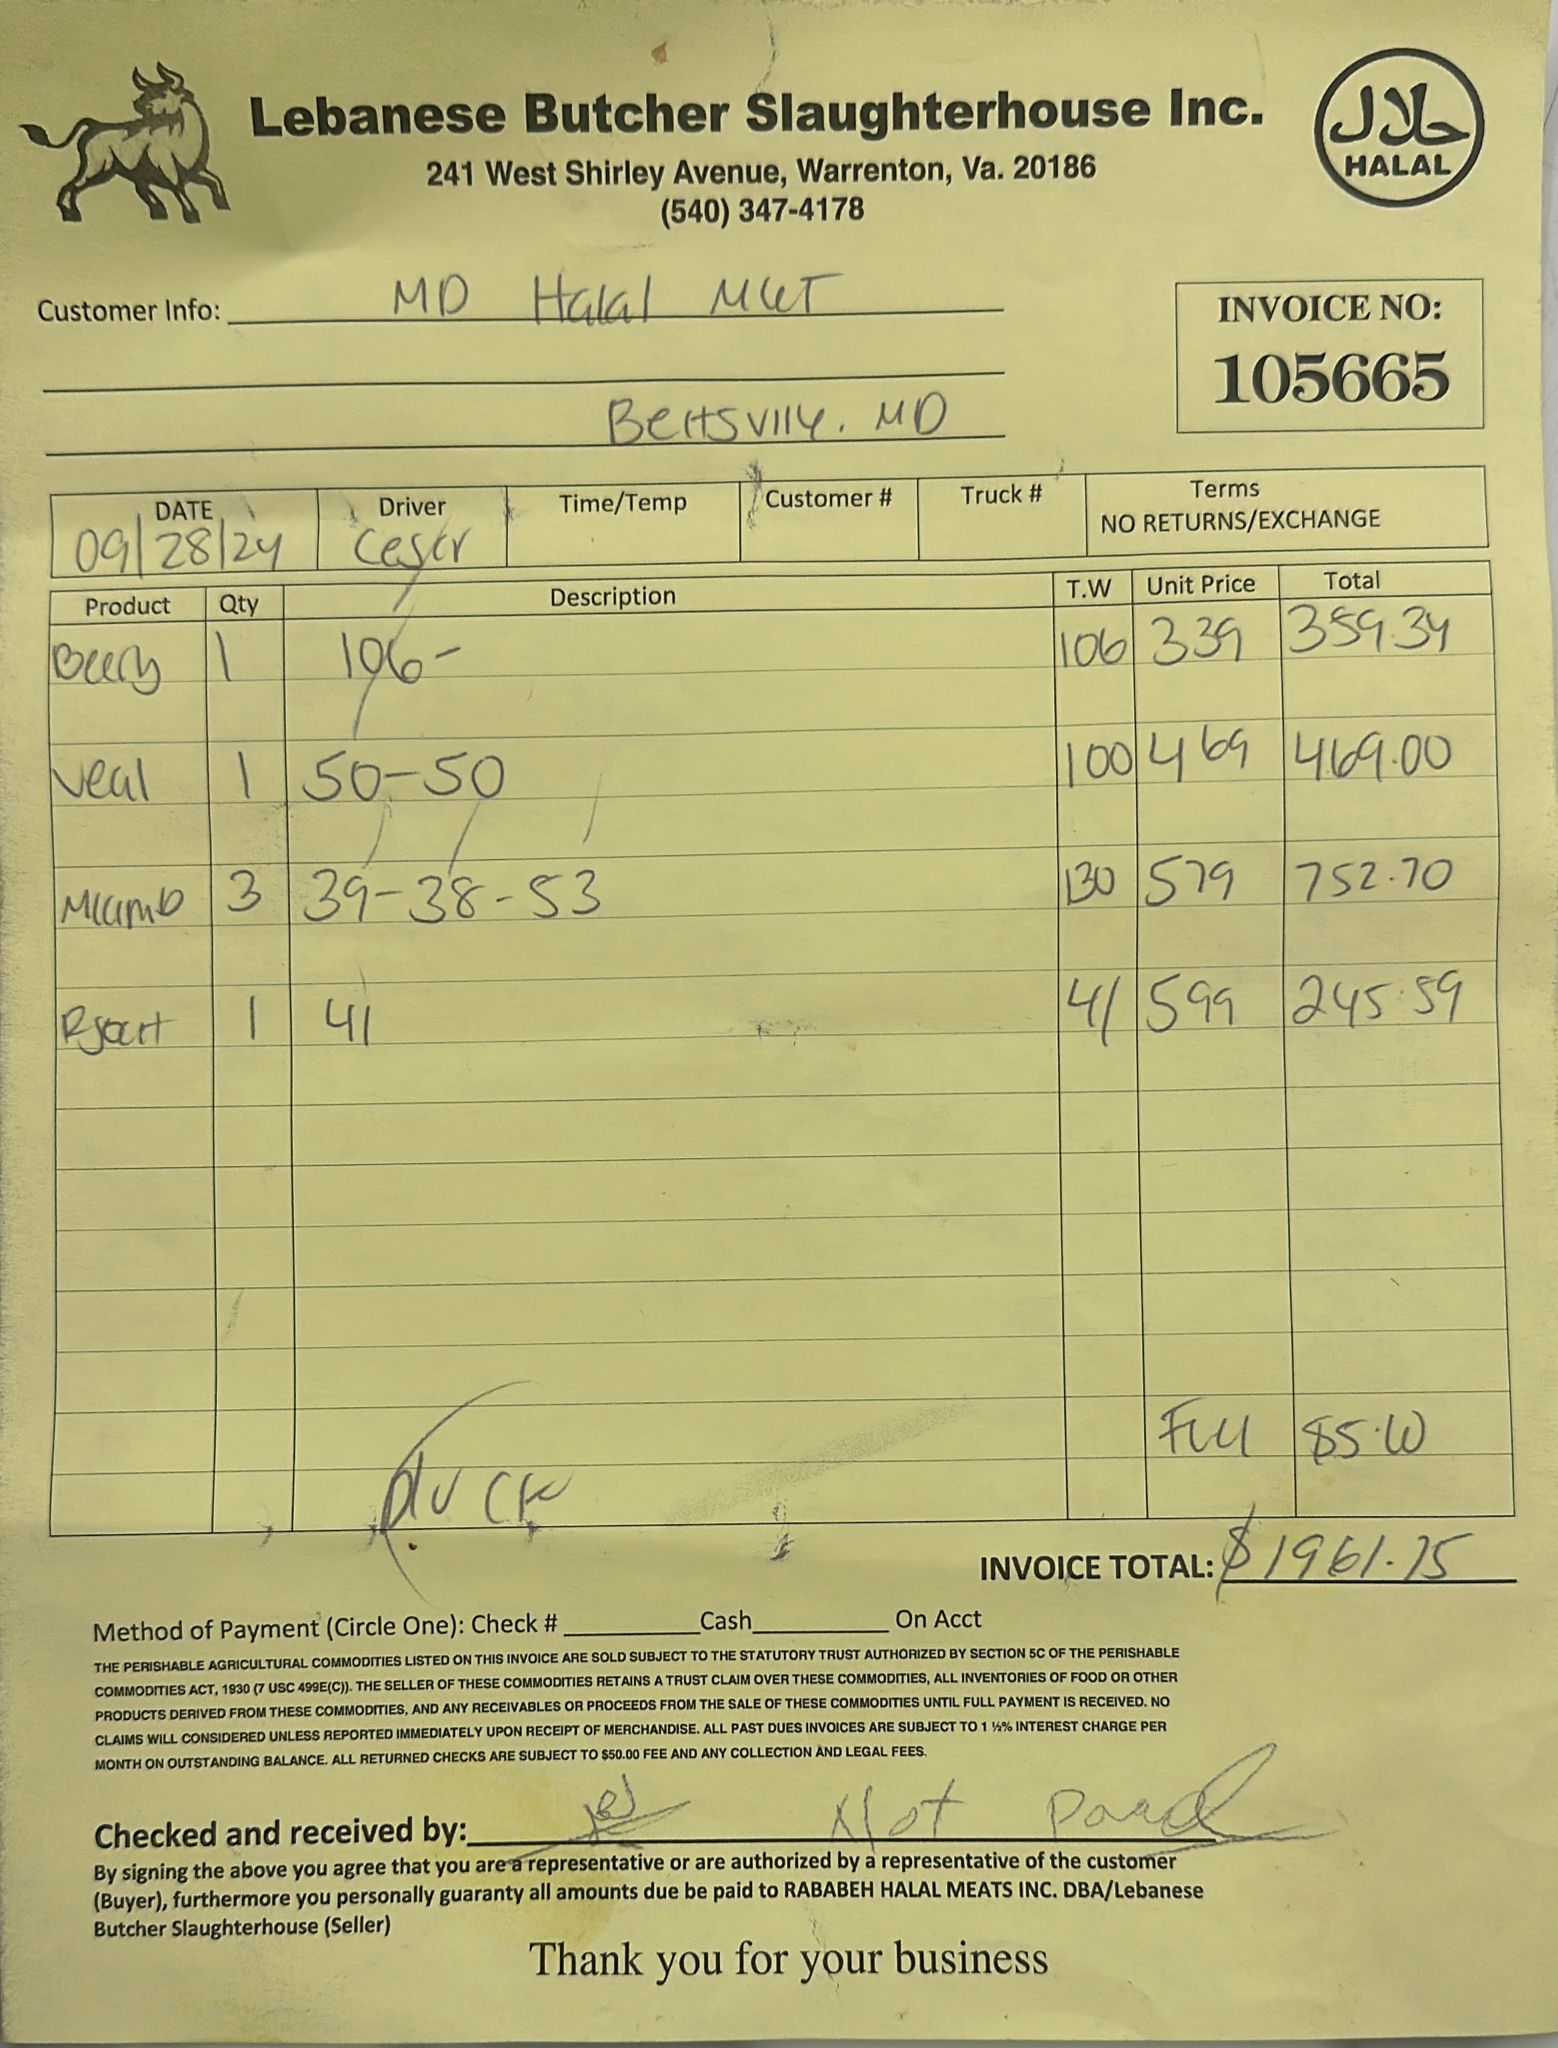 Lebanese Butcher Slaughterhouse Inc.
حلال
HALAL
241 West Shirley Avenue, Warrenton, Va. 20186
(540) 347-4178
Customer Info: MD Halal MKT
INVOICE NO:
105665
Beltsville. MD
DATE Driver Time/Temp Customer # Truck # Terms
NO RETURNS/EXCHANGE
09/28/24
Product Qty Description T.W Unit Price Total
1 106- 106 339 359.34
Veal 1 50-50 100 469 469.00
Mlamb 3 39-38-53 130 579 752.70
1 41 41 599 245.59
85.00
INVOICE TOTAL: $1961.75
Method of Payment (Circle One): Check # Cash On Acct
THE PERISHABLE AGRICULTURAL COMMODITIES LISTED ON THIS INVOICE ARE SOLD SUBJECT TO THE STATUTORY TRUST AUTHORIZED BY SECTION 5C OF THE PERISHABLE
COMMODITIES ACT, 1930 (7 USC 499E(C)). THE SELLER OF THESE COMMODITIES RETAINS A TRUST CLAIM OVER THESE COMMODITIES, ALL INVENTORIES OF FOOD OR OTHER
PRODUCTS DERIVED FROM THESE COMMODITIES, AND ANY RECEIVABLES OR PROCEEDS FROM THE SALE OF THESE COMMODITIES UNTIL FULL PAYMENT IS RECEIVED. NO
CLAIMS WILL CONSIDERED UNLESS REPORTED IMMEDIATELY UPON RECEIPT OF MERCHANDISE. ALL PAST DUES INVOICES ARE SUBJECT TO 1 ½% INTEREST CHARGE PER
MONTH ON OUTSTANDING BALANCE. ALL RETURNED CHECKS ARE SUBJECT TO $50.00 FEE AND ANY COLLECTION AND LEGAL FEES.
Checked and received by: Not
By signing the above you agree that you are a representative or are authorized by a representative of the customer
(Buyer), furthermore you personally guaranty all amounts due be paid to RABABEH HALAL MEATS INC. DBA/Lebanese
Butcher Slaughterhouse (Seller)
Thank you for your business